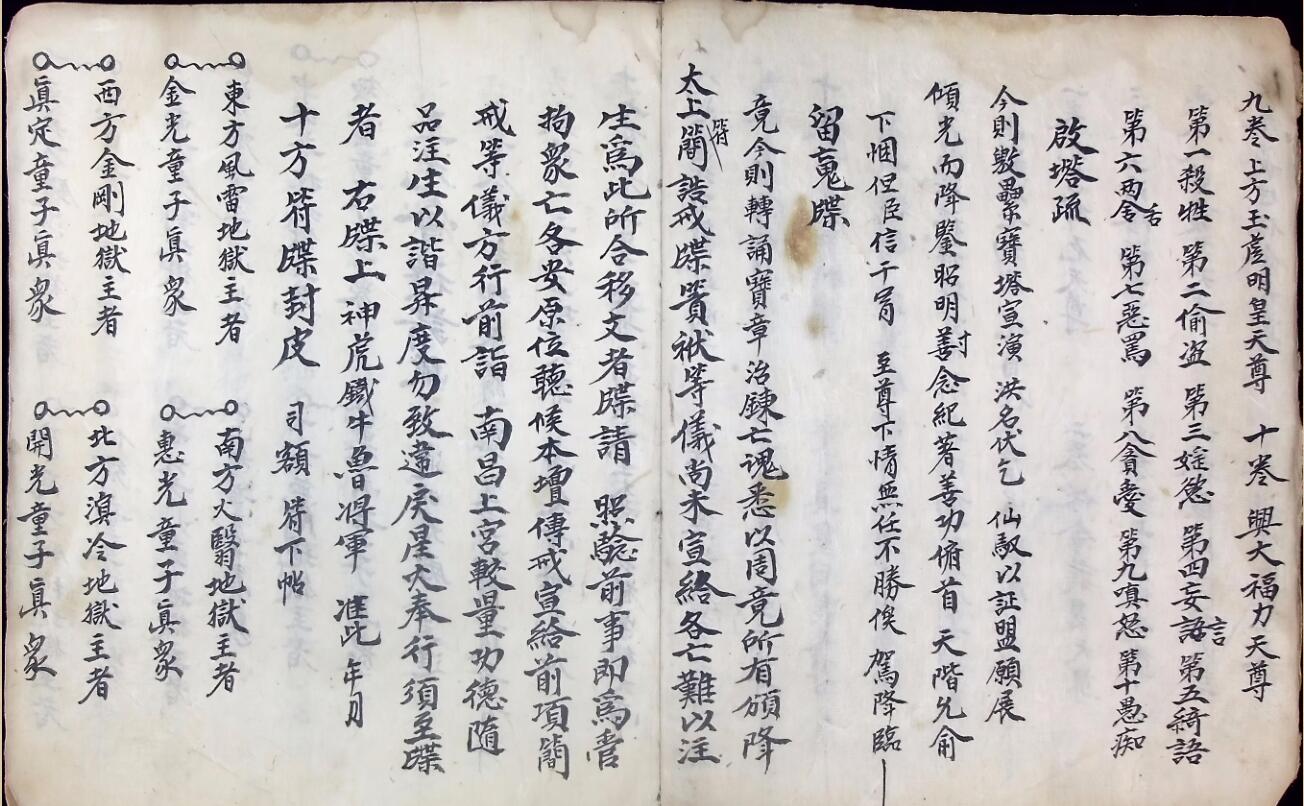 九卷上方玉虗明皇天尊 十卷興大福力天尊
第一殺牲 第二偷盗 第三婬慾 第四妄語言 第五綺語
第六两舍舌 第七惡罵 第八貪愛 第九嗔怒 第十愚痴
啟塔疏
今則敷壘寶塔宣演 洪名伏乞 仙馭以証盟願展
傾光而降鑒昭明善對念紀著善功俯首 天階允俞
下悃但臣信干冐 至尊下情無任不勝俟 駕降臨
留䰟牒
竟今則轉誦寶章治鍊亡魂悉以周竟所有頒降
太上簡符誥戒牒簣袱等儀尚未宣給各亡難以注
生爲此所合移文者牒請 照驗前事即爲管
拘衆亡各安原位聽候本壇傳戒宣給前項簡
戒等儀方行前詣 南昌上宮較量功德隨
品注生以諧昇度勿致違戾星火奉行須至牒
者 右牒上 神虎鐵牛魯將軍 准此 年月
十方符牒封皮 司額 符下帖
東方風雷地獄主者 南方火翳地獄主者
金光童子眞衆 惠光童子眞衆
西方金剛地獄主者 北方溟冷地獄主者
眞定童子眞衆 開光童子眞衆